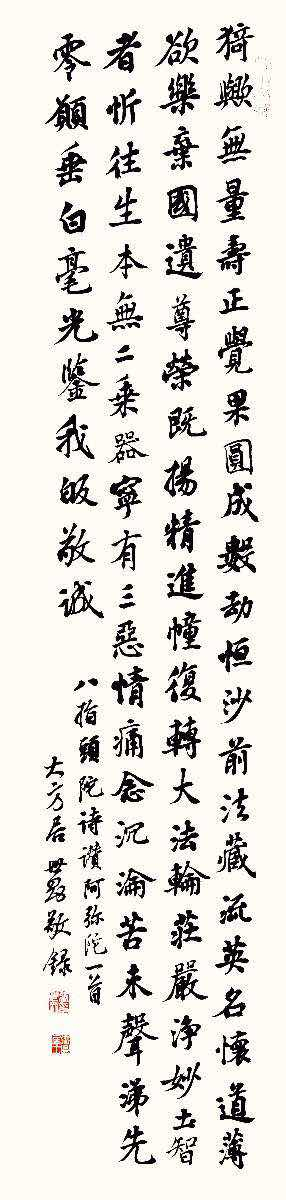 猗歟無量壽正覺果圓成數劫恒沙前法藏流英名懷道薄
欲樂棄國遺尊榮既揚精進幢復轉大法輪莊嚴淨妙土智
者忻往生本無二乘器寧有三惡情痛念沉淪苦未聲涕先
零願垂白毫光鑒我皈敬诚
八指頭陀诗讚阿弥陀一首
大方居 敬録